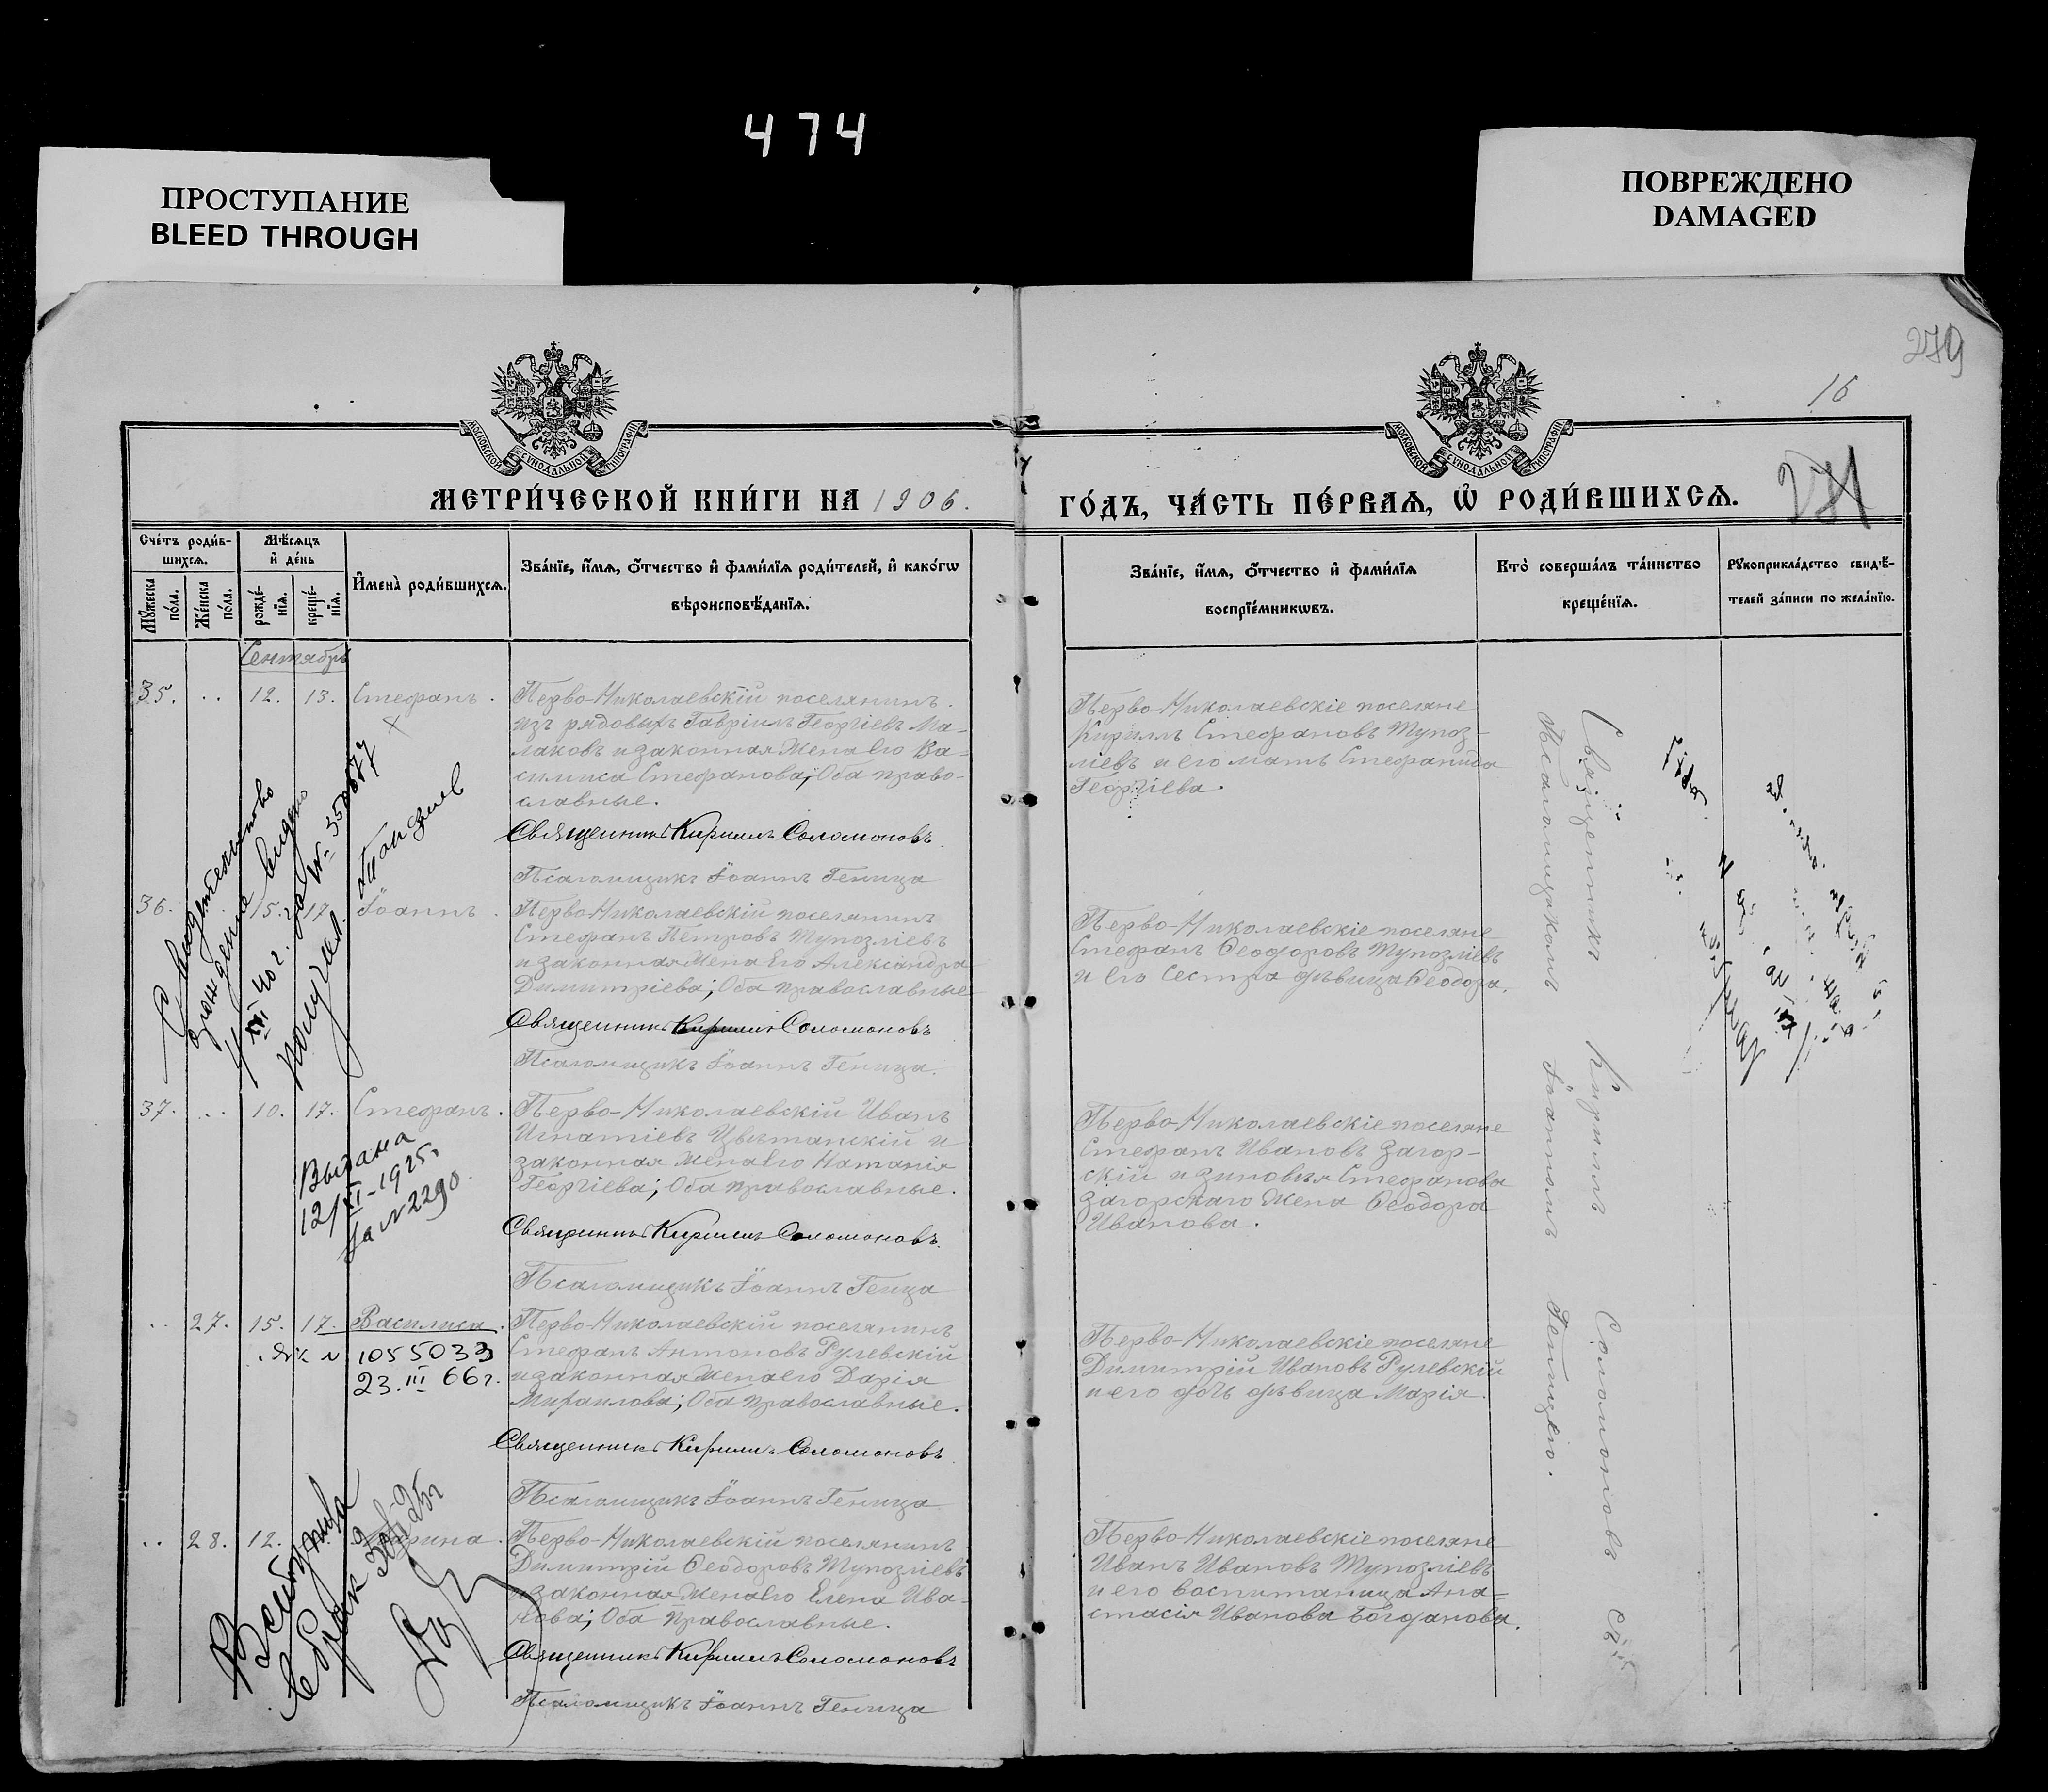 474
ПРОСТУПАНИЕ
BLEED THROUGH
ПОВРЕЖДЕНО
DAMAGED
279
16
МОСКОВСКОЙ СѴНОДАЛЬНОЙ ТИПОГРАФІИ
МОСКОВСКОЙ СѴНОДАЛЬНОЙ ТИПОГРАФІИ
МЕТРИ́ЧЕСКОЙ КНИ́ГИ НА 1906.
ГО́ДЪ, ЧА́СТЬ ПЕ́РВАѦ, Ѽ РОДИ́ВШИХСѦ.
Сче́тъ роди́в-
шихсѧ.
Мꙋ́жеска по́ла.
Же́нска по́ла.
Мѣ́сѧцъ
и҆ де́нь
рожде́-
нїѧ.
креще́-
нїѧ.
И҆мена̀ роди́вшихсѧ.
Зва́нїе, и҆́мѧ, ѻ҆́тчество и҆ фами́лїѧ роди́телей, и҆ како́гѡ
вѣроисповѣ́данїѧ.
Зва́нїе, и҆́мѧ, ѻ҆́тчество и҆ фами́лїѧ
воспрїе́мникѡвъ.
Кто̀ соверша́лъ та́инство
креще́нїѧ.
Рꙋкоприкла́дство свидѣ́-
телей за́писи по жела́нїю.
Сентябрь
35. .. 12. 13. Стефанъ.
Перво-Николаевскій поселянинъ
изъ рядовыхъ Гавріилъ Георгіевъ Ма-
лаковъ и законная жена его Ва-
силиса Стефанова; Оба право-
славные.
Священникъ Кириллъ Соломоновъ
Псаломщикъ Іоаннъ Геница
Перво-Николаевскіе поселяне
Кириллъ Стефановъ Тупоз-
ліевъ и его мать Стефанида
Георгіева.
36. 15. 17. Іоаннъ.
Перво-Николаевскій поселянинъ
Стефанъ Петровъ Тупозліевъ
и законная жена его Александра
Димитріева; Оба православные
Священникъ Кириллъ Соломоновъ
Псаломщикъ Іоаннъ Геница.
Перво-Николаевскіе поселяне
Стефанъ Ѳеодоровъ Тупозліевъ
и его сестра дѣвица Ѳеодора.
Свидетельство
о рождение выдано
XII 40 г. за №
получил
37. .. 10. 17. Стефанъ.
Перво-Николаевскій Иванъ
Игнатіевъ Цвѣтанскій и
законная жена его Наталія
Георгіева; Оба православные.
Священникъ Кириллъ Соломоновъ.
Псаломщикъ Іоаннъ Геница
Перво-Николаевскіе поселяне
Стефанъ Ивановъ Загор-
скій и Зиновія Стефанова
Загорскаго жена Ѳеодора
Иванова.
Выдана
12/XI-1925.
За №2290.
.. 27. 15. 17. Василиса.
Перво-Николаевскій поселянинъ
Стефанъ Антоновъ Рулевскій
и законная жена его Дарія
Михаилова; Оба православные.
Священникъ Кириллъ Соломоновъ
Псаломщикъ Іоаннъ Геница
Перво-Николаевскіе поселяне
Димитрій Ивановъ Рулевскій
и его дочь дѣвица Марія.
1055033
23.III 66г.
.. 28. 12.
Перво-Николаевскій поселянинъ
Димитрій Ѳеодоровъ Тупозліевъ
и законная жена его Елена Ива-
нова; Оба православные.
Священникъ Кириллъ Соломоновъ
Псаломщикъ Іоаннъ Геница
Перво-Николаевскіе поселяне
Иванъ Ивановъ Тупозліевъ
и его воспитаница Ана-
стасія Иванова Богданова.
Вступила
в брак
Священникъ Кириллъ Соломоновъ съ
Псаломщикомъ Іоанномъ Геницею.